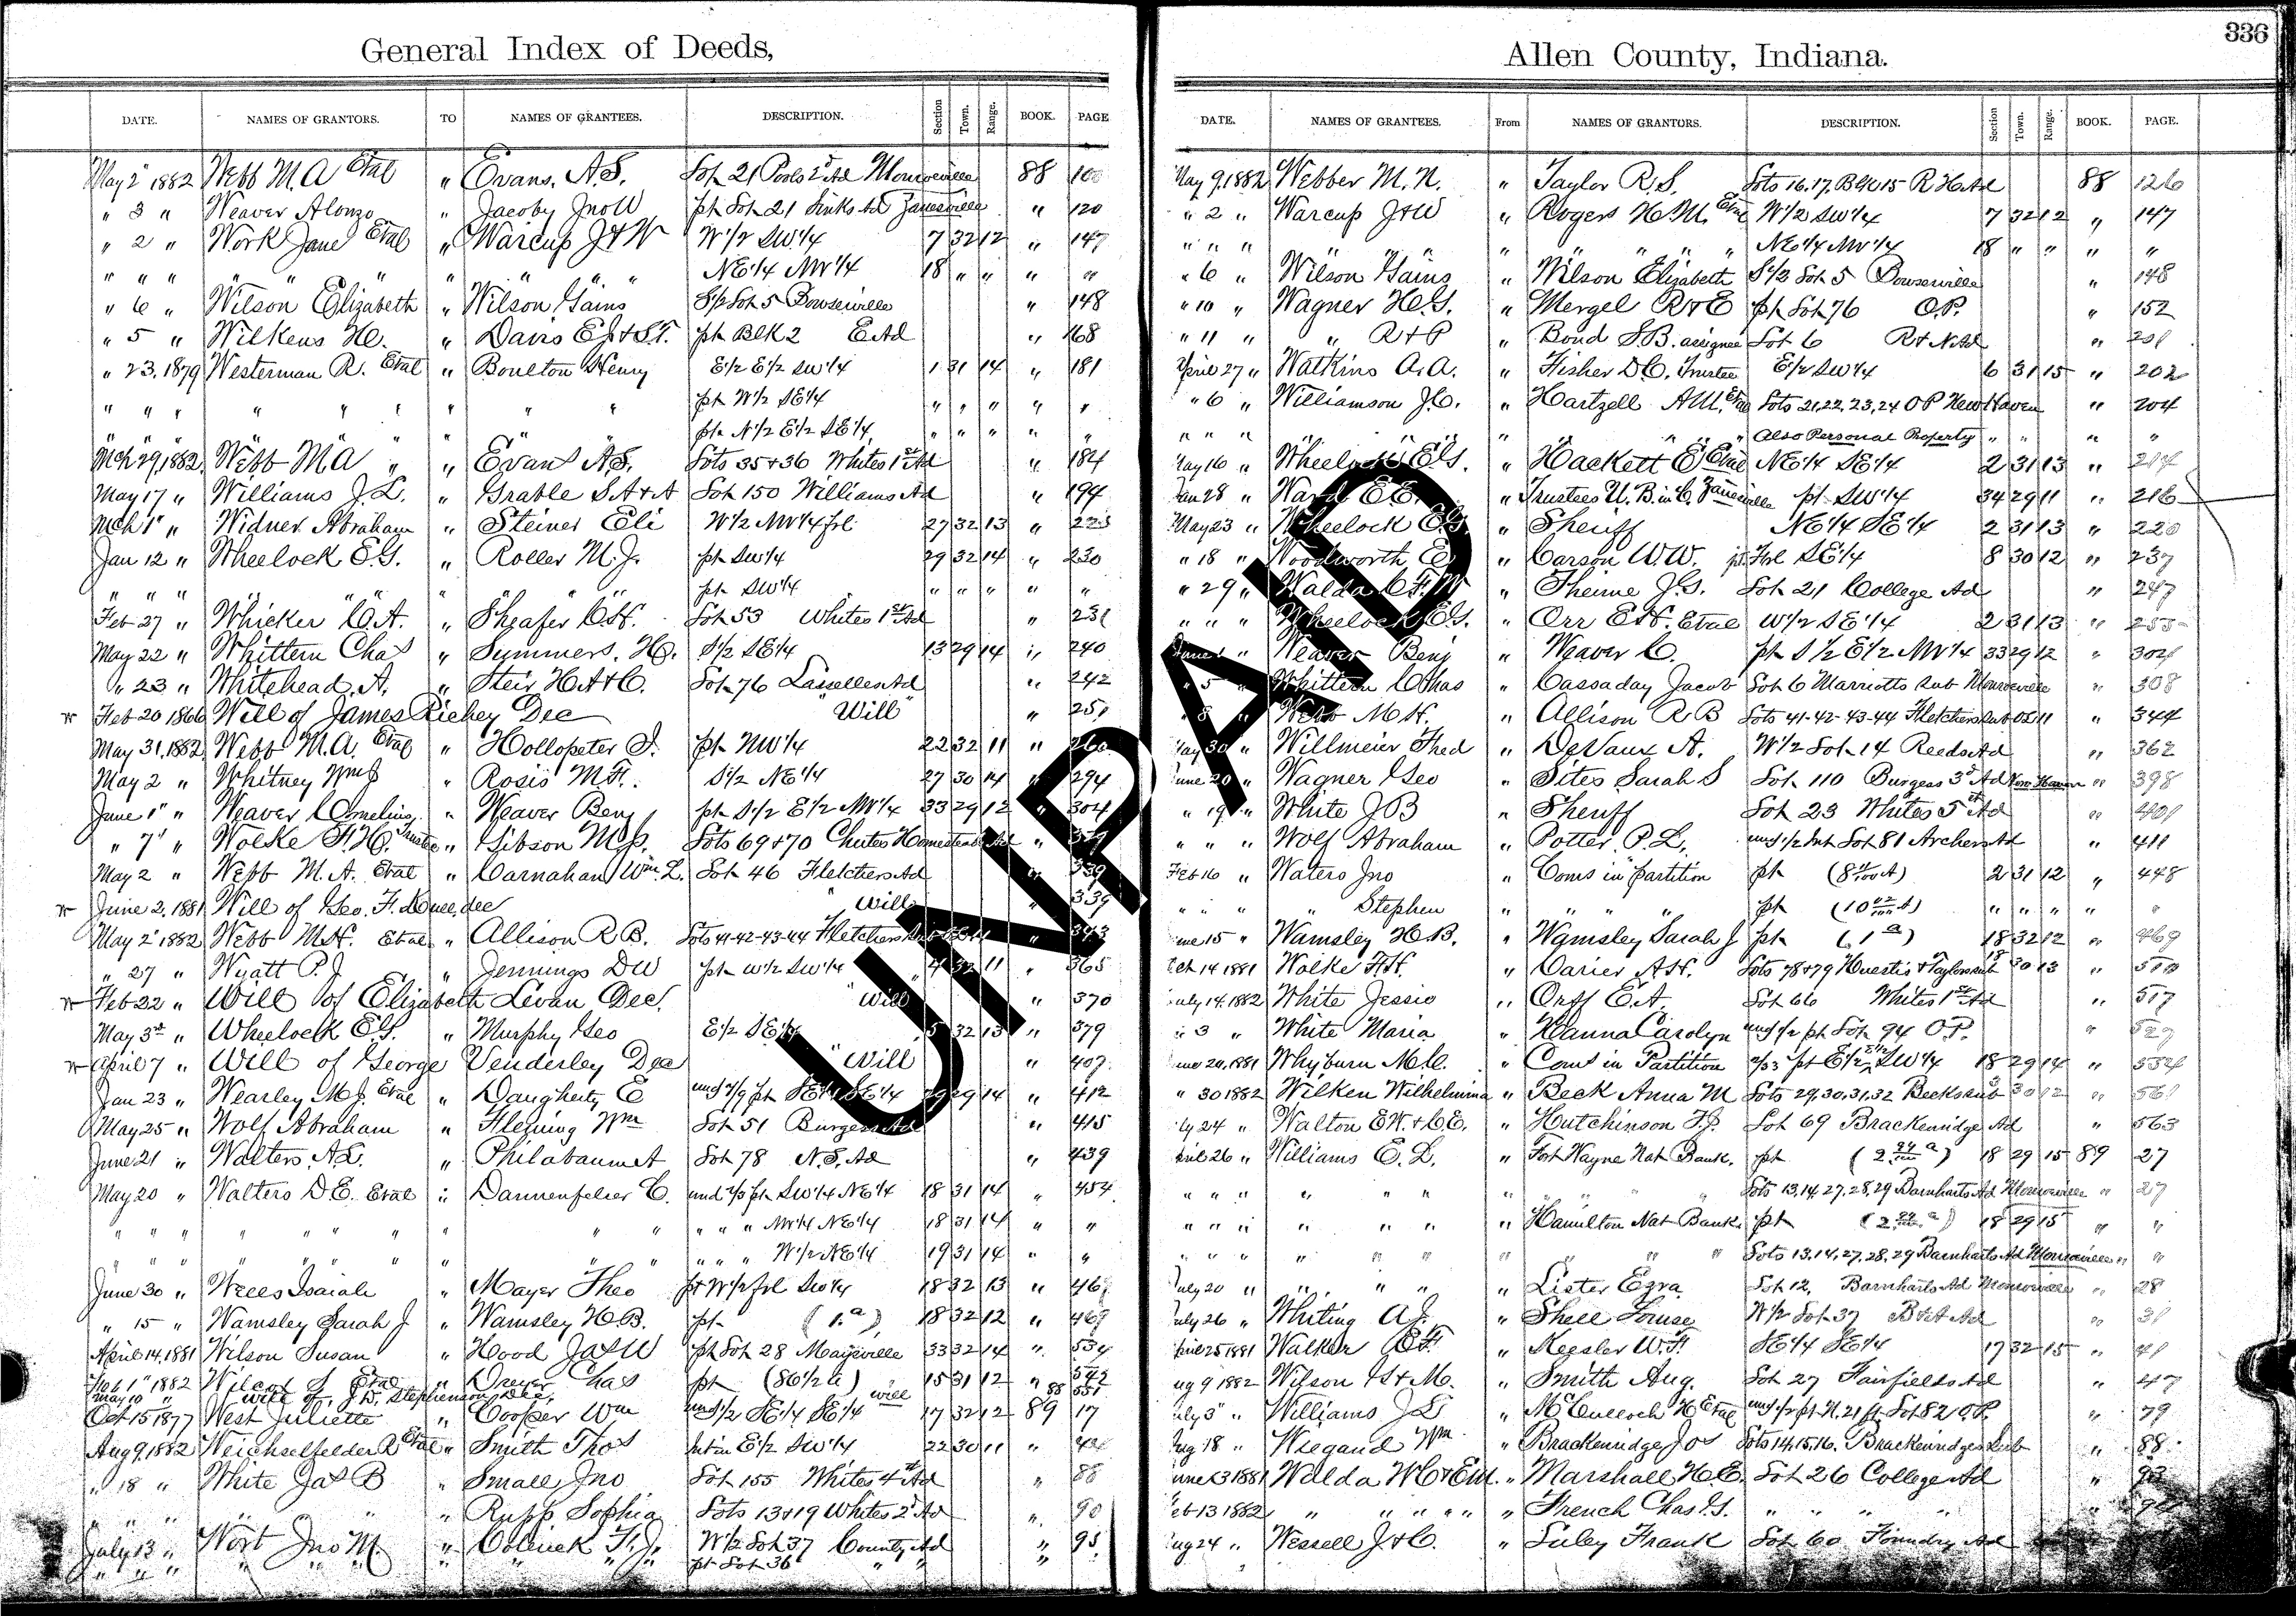 336
General Index of Deeds,
DATE. NAMES OF GRANTORS. TO NAMES OF GRANTEES. DESCRIPTION. Section Town. Range. BOOK. PAGE
May 2 1882 Webb M. A Etal " Evans, A. S. Lot 21 2d Ad Monroeville 88
" 3 " Weaver Alonzo " Jacoby Jno W pt Lot 21 Links Ad Zanesville " 120
" 2 " Work Jane Etal " Warcup J & W W 1/2 SW 1/4 7 32 12 " 147
" " " " " " " " " " NE 1/4 NW 1/4 18 " " " "
" 6 " Wilson Elizabeth " Wilson Gains S 1/2 Lot 5 Bowserville " 148
" 5 " Wilkens H. C. " Davis E. & S. F. pt Blk 2 E Ad " 168
" 23, 1879 Westerman R. Etal " Boulton Henry E 1/2 E 1/2 SW 1/4 1 31 14 " 181
" " " " " " " " " pt W 1/2 SE 1/4 " " " " "
" " " " " " pt N 1/2 E 1/2 SE 1/4 " " " " "
Mch 29, 1882 Webb M A " " Evans A S. Lots 35 & 36 Whites 1st Ad " 184
May 17 " Williams J. L. " Grable S. A & A Lot 150 Williams Ad " 194
Mch 1 " Widner Abraham " Steiner Eli W 1/2 NW 1/4 frl 27 32 13 "
Jan 12 " Wheelock E. G. " Roller M. J. pt SW 1/4 29 32 14 " 230
" " " " " " " pt SW 1/4 " " " " "
Feb 27 " Whicker C. A. " Sheafer C. H. Lot 53 Whites 1st Ad " 231
May 22 " Whittern Chas " Summers, H. C. S 1/2 SE 1/4 13 29 14 " 240
" 23 " Whitehead, A. " Steir H. A & C. Lot 76 Lasselles Ad " 242
Feb 20 1866 Will of James Richey Dec "Will" " 251
May 31, 1882 Webb M. A. Etal " Hollopeter I. pt NW 1/4 22 32 11 " 260
May 2 " Whitney Wm J " Rosis M. F. S 1/2 NE 1/4 27 30 14 " 294
June 1 " Weaver Cornelius " Weaver Benj pt S 1/2 E 1/2 NW 1/4 33 29 12 " 304
" 7 " Wolke F. H. Trustee " Gibson M. Lots 69 & 70 Chutes Homestead Ad "
May 2 " Webb M. A. Etal " Carnahan Wm. L. Lot 46 Fletchers Ad " 339
June 2, 1881 Will of Geo. F. dec "Will" " 339
May 2 1882 Webb M. H. Etal " Allison R B. Lots 41-42-43-44 Fletchers Sub " 343
" 27 " Wyatt P. J " Jennings D W pt W 1/2 SW 1/4 4 32 11 " 365
Feb 22 " Will of Elizabeth Levan Dec. "Will" " 370
May 3d " Wheelock E. G. " Murphy Geo E 1/2 SE 1/4 5 32 13 " 379
April 7 " Will of George Venderley Dec "Will" " 407
Jan 23 " Wearley M. J. Etal " Daugherty E und 4/9 pt SE 1/4 SE 1/4 29 29 14 " 412
May 25 " Wolf Abraham " Fleming Wm Lot 51 Burgess Ad " 415
June 21 " Walters, A. L. " Philabaum A Lot 78 N. S. Ad " 439
May 20 " Walters D. E. Etal " Dannenfelser C. und 2/3 pt SW 1/4 NE 1/4 18 31 14 " 454
" " " " " " " " " " " " NW 1/4 NE 1/4 18 31 14 " "
" " " " " " " " " " " " W 1/2 NE 1/4 19 31 14 " "
June 30 " Wells Isaiah " Mayer Theo pt W 1/2 frl SW 1/4 18 32 13 "
" 15 " Wamsley Sarah J " Wamsley H. B. pt (1 a) 18 32 12 " 469
April 14, 1881 Wilson Susan " Hood Jas W pt Lot 28 Maysville 33 32 14 " 534
Feb 1 1882 Wilcox S. Etal " Dreyer Chas pt (86 1/2 a) 15 31 12 " 542
May 10 " Will of J. D. Stephenson Dec. "Will" 88 551
Oct 15 1877 West Juliette " Cooper Wm und 1/2 SE 1/4 SE 1/4 17 32 12 89 17
Aug 9, 1882 Weichselfelder R Etal " Smith Thos Int in E 1/2 SW 1/4 22 30 11 "
" 18 " White Jas B " Small Jno Lot 155 Whites 4th Ad " 88
" " " " " Rupp Sophia Lots 13 & 19 Whites 2d Ad " 90
July 13 " Wort Jno M " F. J. W 1/2 Lot 37 County Ad " 95
" " " " " " " " pt Lot 36 " " "
Allen County, Indiana.
DATE. NAMES OF GRANTEES. From NAMES OF GRANTORS. DESCRIPTION. Section Town. Range. BOOK. PAGE.
May 9, 1882 Webber M. N. " Taylor R. S. Lots 16, 17, Blk 15 R H Ad 88 126
" 2 " Warcup J & W " Rogers H. M. Etal W 1/2 SW 1/4 7 32 12 " 147
" " " " " " " " " " NE 1/4 NW 1/4 18 " " " "
" 6 " Wilson Gains " Wilson Elizabeth S 1/2 Lot 5 Bowserville " 148
" 10 " Wagner H. G. " Mergel R & E pt Lot 76 O. P. " 152
" 11 " " R & P " Bond S. B. assignee Lot 6 R & N Ad " 201
April 27 " Watkins A. A. " Fisher D. C. Trustee E 1/2 SW 1/4 6 31 15 " 202
" 6 " Williamson J. C. " Hartzell A. M. Etal Lots 21, 22, 23, 24 O P New Haven " 204
" " " " " " " " " Also Personal Property " " " "
May 16 " Wheelock E G. " Hackett E Etal NE 1/4 SE 1/4 2 31 13 "
Jan 28 " Ward E E. " Trustees U. B. in C. Zanesville pt SW 1/4 34 29 11 " 216
May 23 " Wheelock E G " Sheriff NE 1/4 SE 1/4 2 31 13 " 220
" 18 " Woodworth, C " Carson W. W. pt Frl SE 1/4 8 30 12 " 237
" 29 " Walda C F. W " Thieme J. G. Lot 21 College Ad " 247
" " " Wheelock E. G. " Orr E. H. Etal W 1/2 SE 1/4 2 31 13 " 255
June 1 " Weaver Benj " Weaver C. pt S 1/2 E 1/2 NW 1/4 33 29 12 " 304
" 5 " Whittern Chas " Cassaday Jacob Lot 6 Marriotts Sub Monroeville " 308
" 8 " Webb M. H. " Allison R B Lots 41-42-43-44 Fletchers Sub " 344
May 30 " Willmeier Fred " DeVaux A. W 1/2 Lot 14 Reeds Ad " 362
June 20 " Wagner Geo " Sites Sarah S Lot 110 Burgess 3d Ad New Haven " 398
" 19 " White J B " Sheriff Lot 23 Whites 5th Ad " 401
" " " Wolf Abraham " Potter P. L. und 1/2 Int Lot 81 Archers Ad " 411
Feb 16 " Waters Jno " Coms in Partition pt 2 31 12 " 448
" " " " Stephen " " " " pt " " " " "
June 15 " Wamsley H. B. " Wamsley Sarah J pt (1 a) 18 32 12 " 469
Feb 14 1881 Wolke F. H. " Carier A. H. Lots 78 & 79 Huestis & Taylors Sub 18 30 13 "
July 14, 1882 White Jessie " Orff E. A. Lot 66 Whites 1st Ad " 517
" 3 " White Maria " Hanna Carolyn und 1/2 pt Lot 94 O. P. " 527
June 20, 1881 Whyburn M. C. " Coms in Partition pt E 1/2 SW 1/4 18 29 14 " 534
" 30 1882 Wilken Wilhelmina " Beck Anna M Lots 29, 30, 31, 32 Becks Sub 3 30 12 " 561
July 24 " Walton E W. & C E. " Hutchinson F. J. Lot 69 Brackenridge Ad " 563
April 26 " Williams E. L. " Fort Wayne Nat Bank. pt 18 29 15 89 27
" " " " " " " " Lots 13, 14, 27, 28, 29 Barnharts Ad Monroeville " 27
" " " " " " " Hamilton Nat Bank pt 18 29 15 " "
" " " " " " " " " " Lots 13, 14, 27, 28, 29 Barnharts Ad Monroeville " "
July 20 " " " " " Lister Ezra Lot 12, Barnharts Ad Monroeville " 28
July 26 " Whiting A. J. " Shell Louise W 1/2 Lot 37 B & A Ad " 31
April 25 1881 Walker C F. " Keesler W. F. SE 1/4 SE 1/4 17 32 15 " 41
Aug 9 1882 Wilson G & M. " Smith Aug. Lot 27 Fairfields Ad " 47
July 3 " Williams J L " McCulloch H Etal und 1/2 pt N. 21 ft Lot 82 O. P. " 79
Aug 18 " Wiegand Wm " Brackenridge Jos Lots 14, 15, 16, Brackenridges Sub " 88
June 23 1881 Walda W C & Em. " Marshall H. C. Lot 26 College Ad " 93
Feb 13 1882 " " " " " " French Chas. G. " " " " "
Aug 24 " Wessell J & C. " Luley Frank Lot 60 Foundry Ad
UNRATED